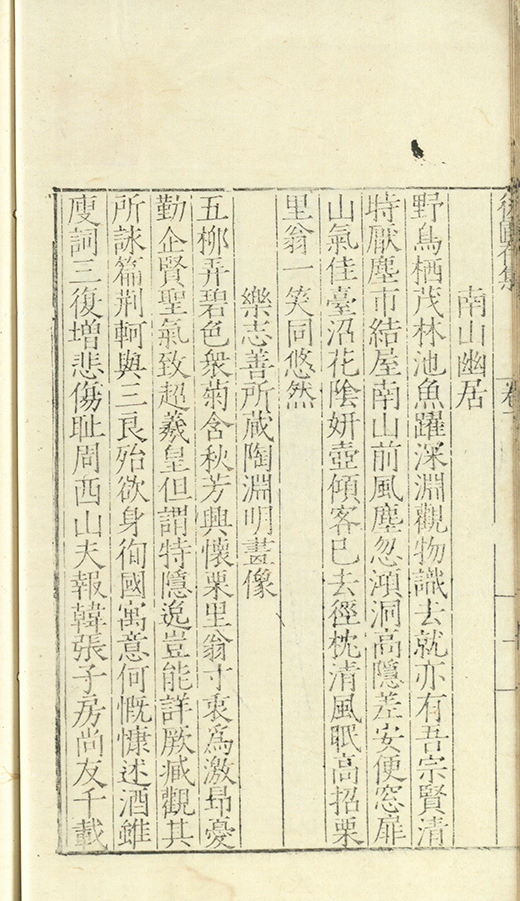 卷
南山幽居
野鳥栖茂林池魚躍深淵觀物識去就亦有吾宗賢清
時厭塵市結屋南山前風塵忽澒洞高隱差安便窓扉
山氣佳臺沼花陰妍壺傾客已去徑枕清風眠高招栗
里翁一笑同悠然
樂志善所蔵陶淵明畫像
五柳弄碧色衆菊含秋芳興懷栗里翁寸衷為激昂憂
勤企賢聖氣致超羲皇但謂特隱逸豈能詳厥臧觀其
所詠篇荆軻與三良殆欲身徇國寓意何慨慷述酒雖
廋詞三復增悲傷耻周西山夫報韓張子房尚友千載